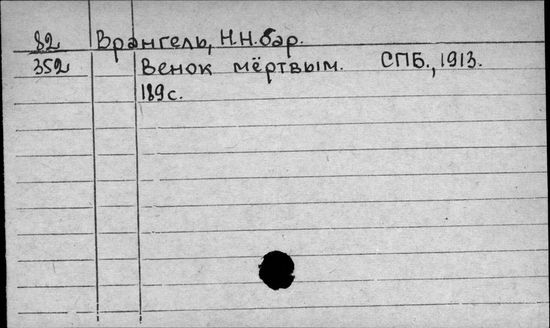 82 Врангель, Н.Н. бар.
352 Венок мёртвым. СПБ., 1913.
189 с.